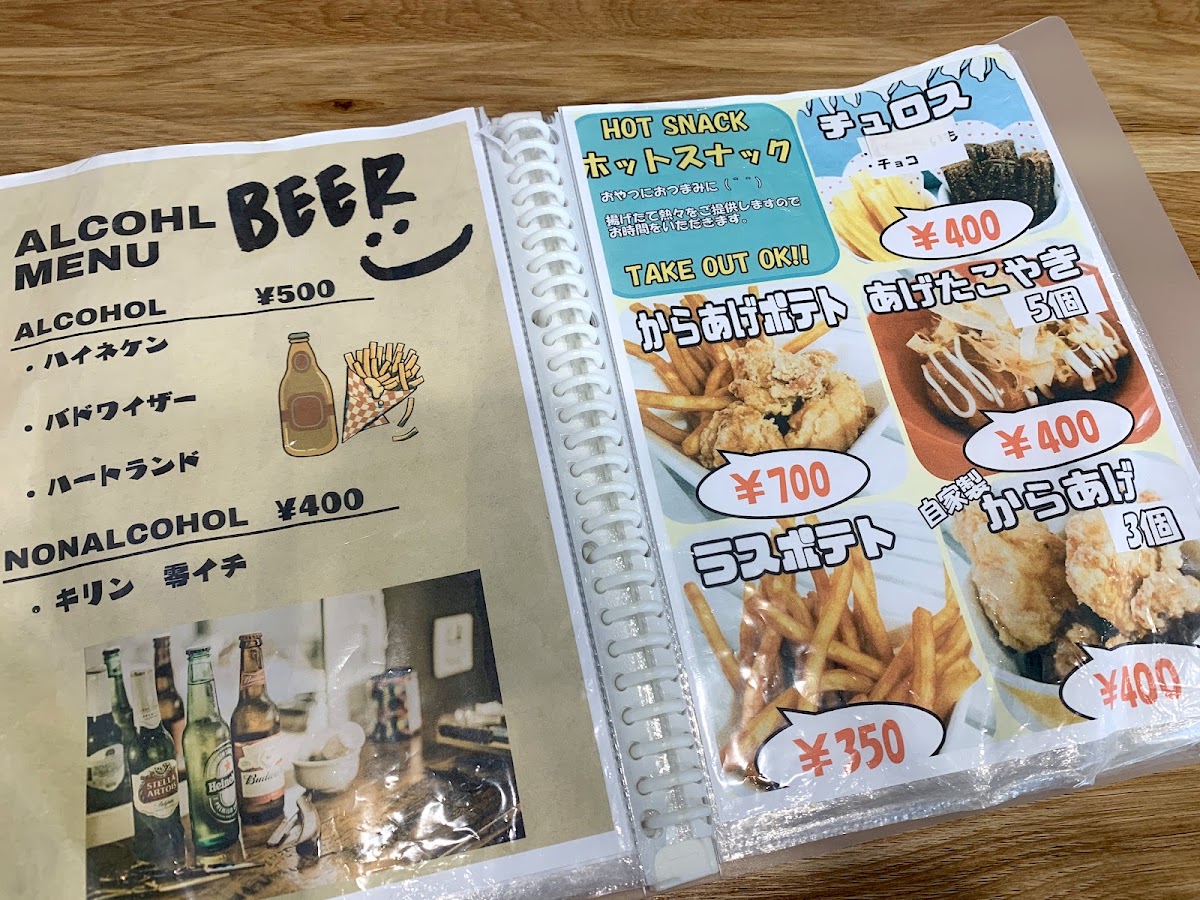 ALCOHL
MENU
BEER
ALCOHOL ¥500
・ハイネケン
・バドワイザー
・ハートランド
NONALCOHOL ¥400
・キリン 零イチ
STELLA
ARTOIS
Heineken
HOT SNACK
ホットスナック
おやつにおつまみに(^^)
揚げたて熱々をご提供しますので
お時間をいただきます。
TAKE OUT OK!!
チュロス
・チョコ
¥400
からあげポテト
¥700
あげたこやき
5個
¥400
ラスポテト
¥350
自家製
からあげ
3個
¥400